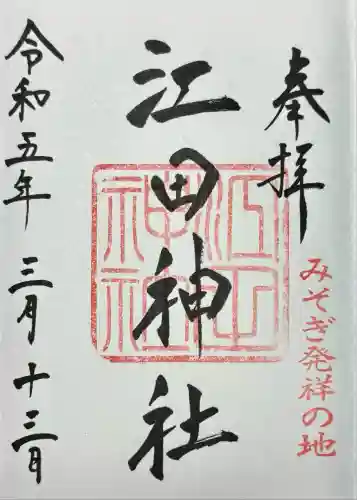 奉拝
みそぎ発祥の地
江田神社
江田
神社
令和五年 三月 十三日